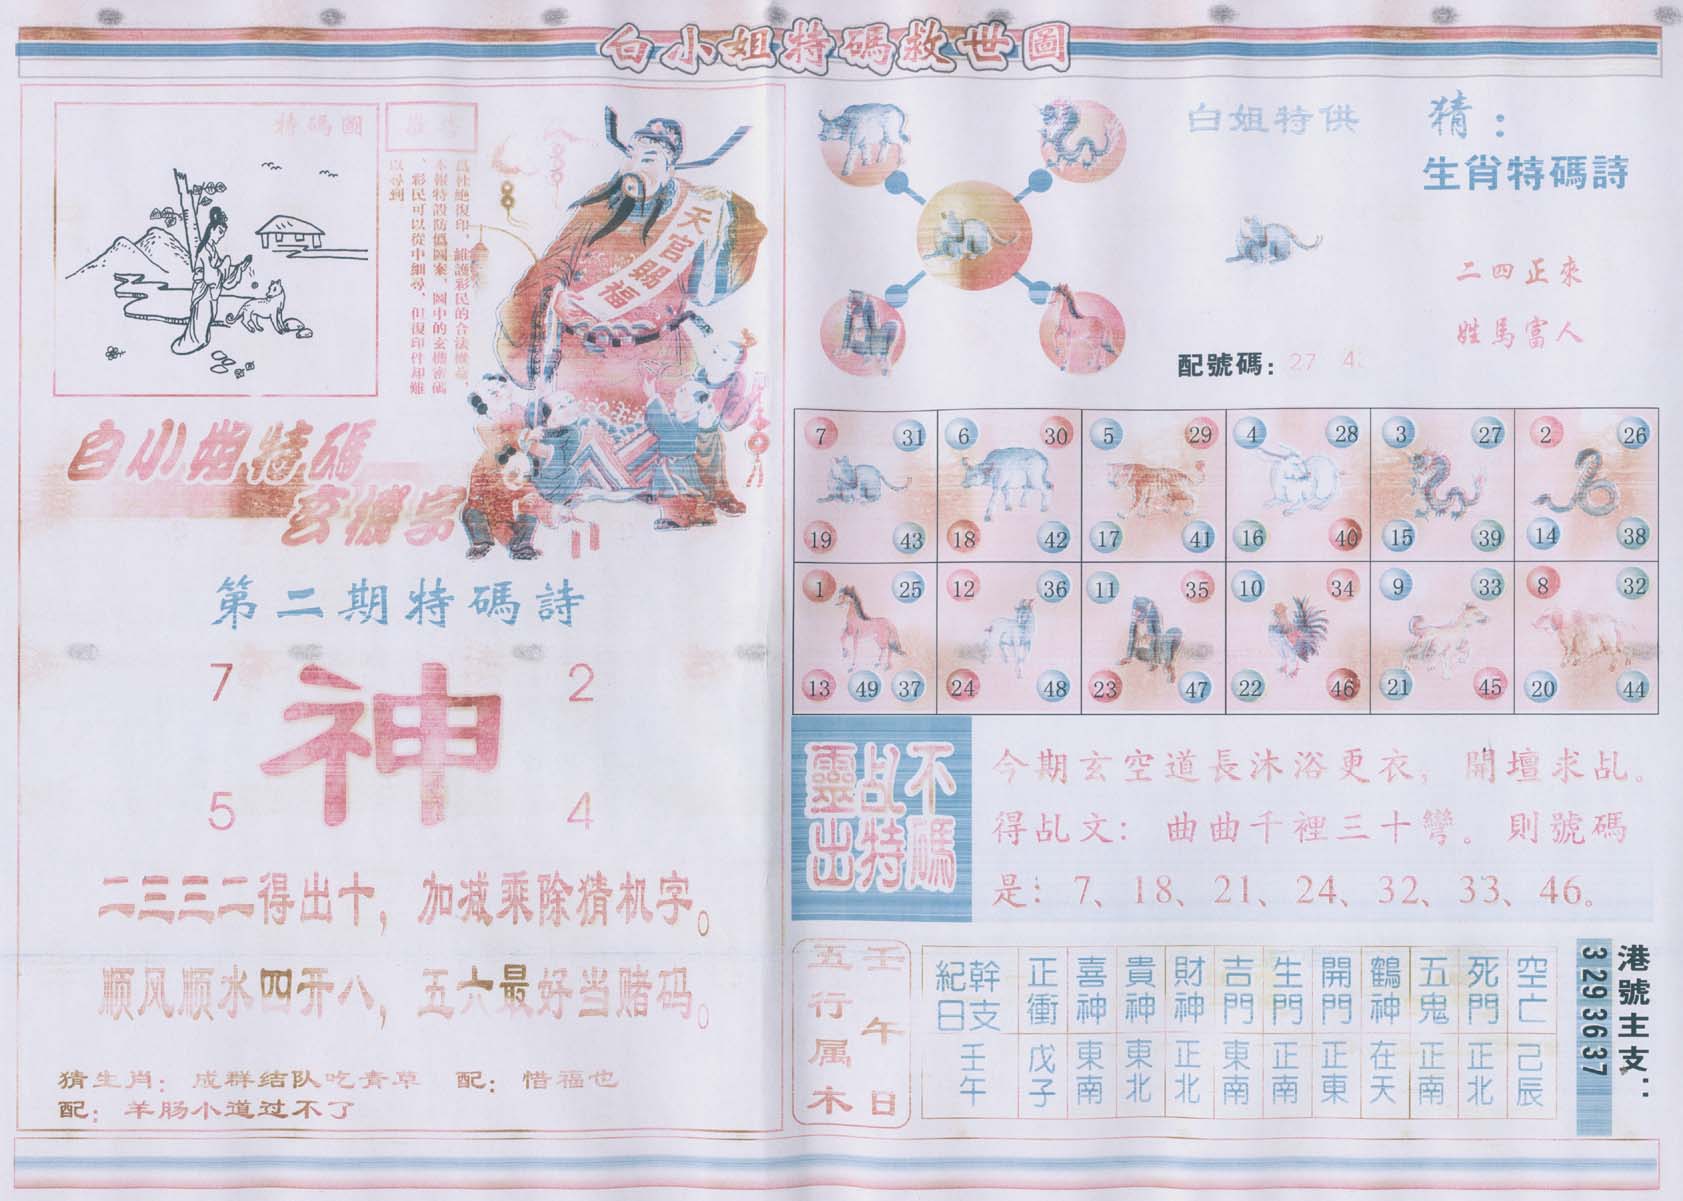 白小姐特碼救世圖
特碼圖
爲杜絶復印，維護彩民的合法權益，
本報特設防僞圖案，圖中的玄機密碼
，彩民可以從中細尋，但復印件却難
以尋到
天官賜福
白小姐特碼
玄機字
第二期特碼詩
7 2
神
5 4
二三三二得出十，加减乘除猜机字。
顺风顺水四开八，五六最好当赌码。
猜生肖：成群结队吃青草 配：惜福也
配：羊肠小道过不了
白姐特供
猜：
生肖特碼詩
二四正來
姓馬富人
配號碼：27
7 31 6 30 5 29 4 28 3 27 2 26
19 43 18 42 17 41 16 40 15 39 14 38
1 25 12 36 11 35 10 34 9 33 8 32
13 49 37 24 48 23 47 22 46 21 45 20 44
不碼
乩特
靈出
今期玄空道長沐浴更衣，開壇求乩。
得乩文：曲曲千裡三十彎。則號碼
是：7、18、21、24、32、33、46。
壬午日
五行属木
幹支紀日 正衝 喜神 貴神 財神 吉門 生門 開門 鶴神 五鬼 死門 空亡
壬午 戊子 東南 東北 正北 東南 正南 正東 在天 正南 正北 己辰
港號主支：
3293637